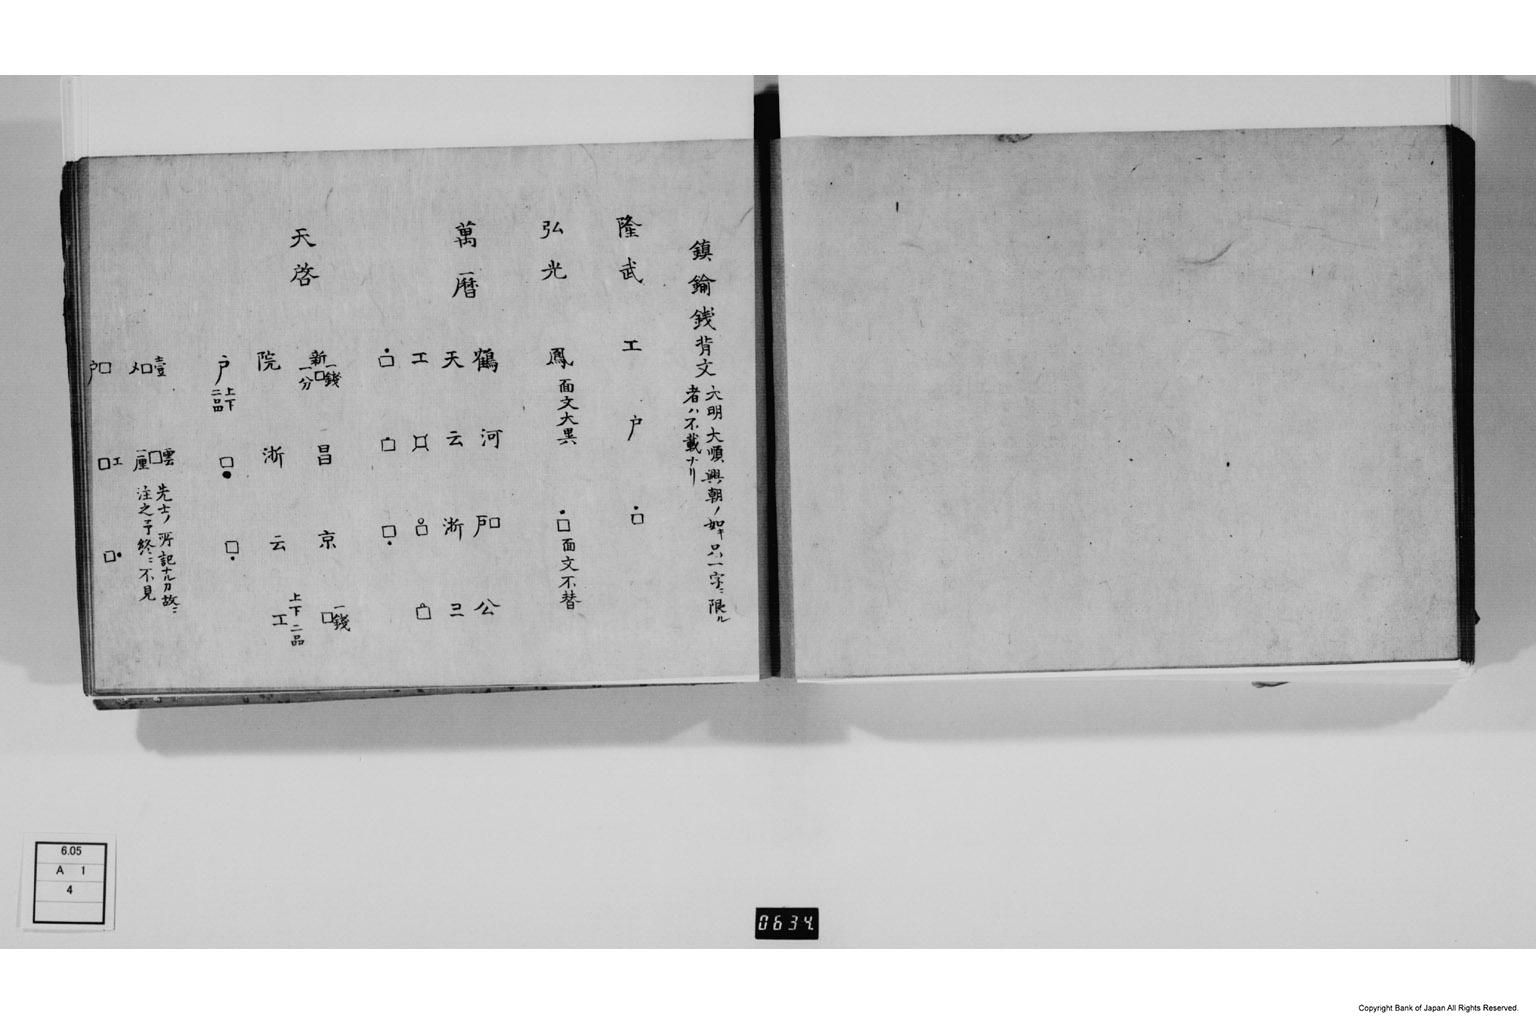 鎮鍮銭背文 大明大順興朝ノ如キ只一字ニ限ル
者ハ不載ナリ
隆武 工 戸
弘光 鳳 面文大異 面文不替
萬暦 鶴 河 戸 公
天 云 浙
工
天啓 新 一銭 一分 昌 京 一銭
院 浙 云 工 上下二品
戸 上下二品
壹 雲 一厘 先士ノ所記ナル乃故ニ
注之予終ニ不見
戸 工
6.05
A 1
4
0634
Copyright Bank of Japan All Rights Reserved.